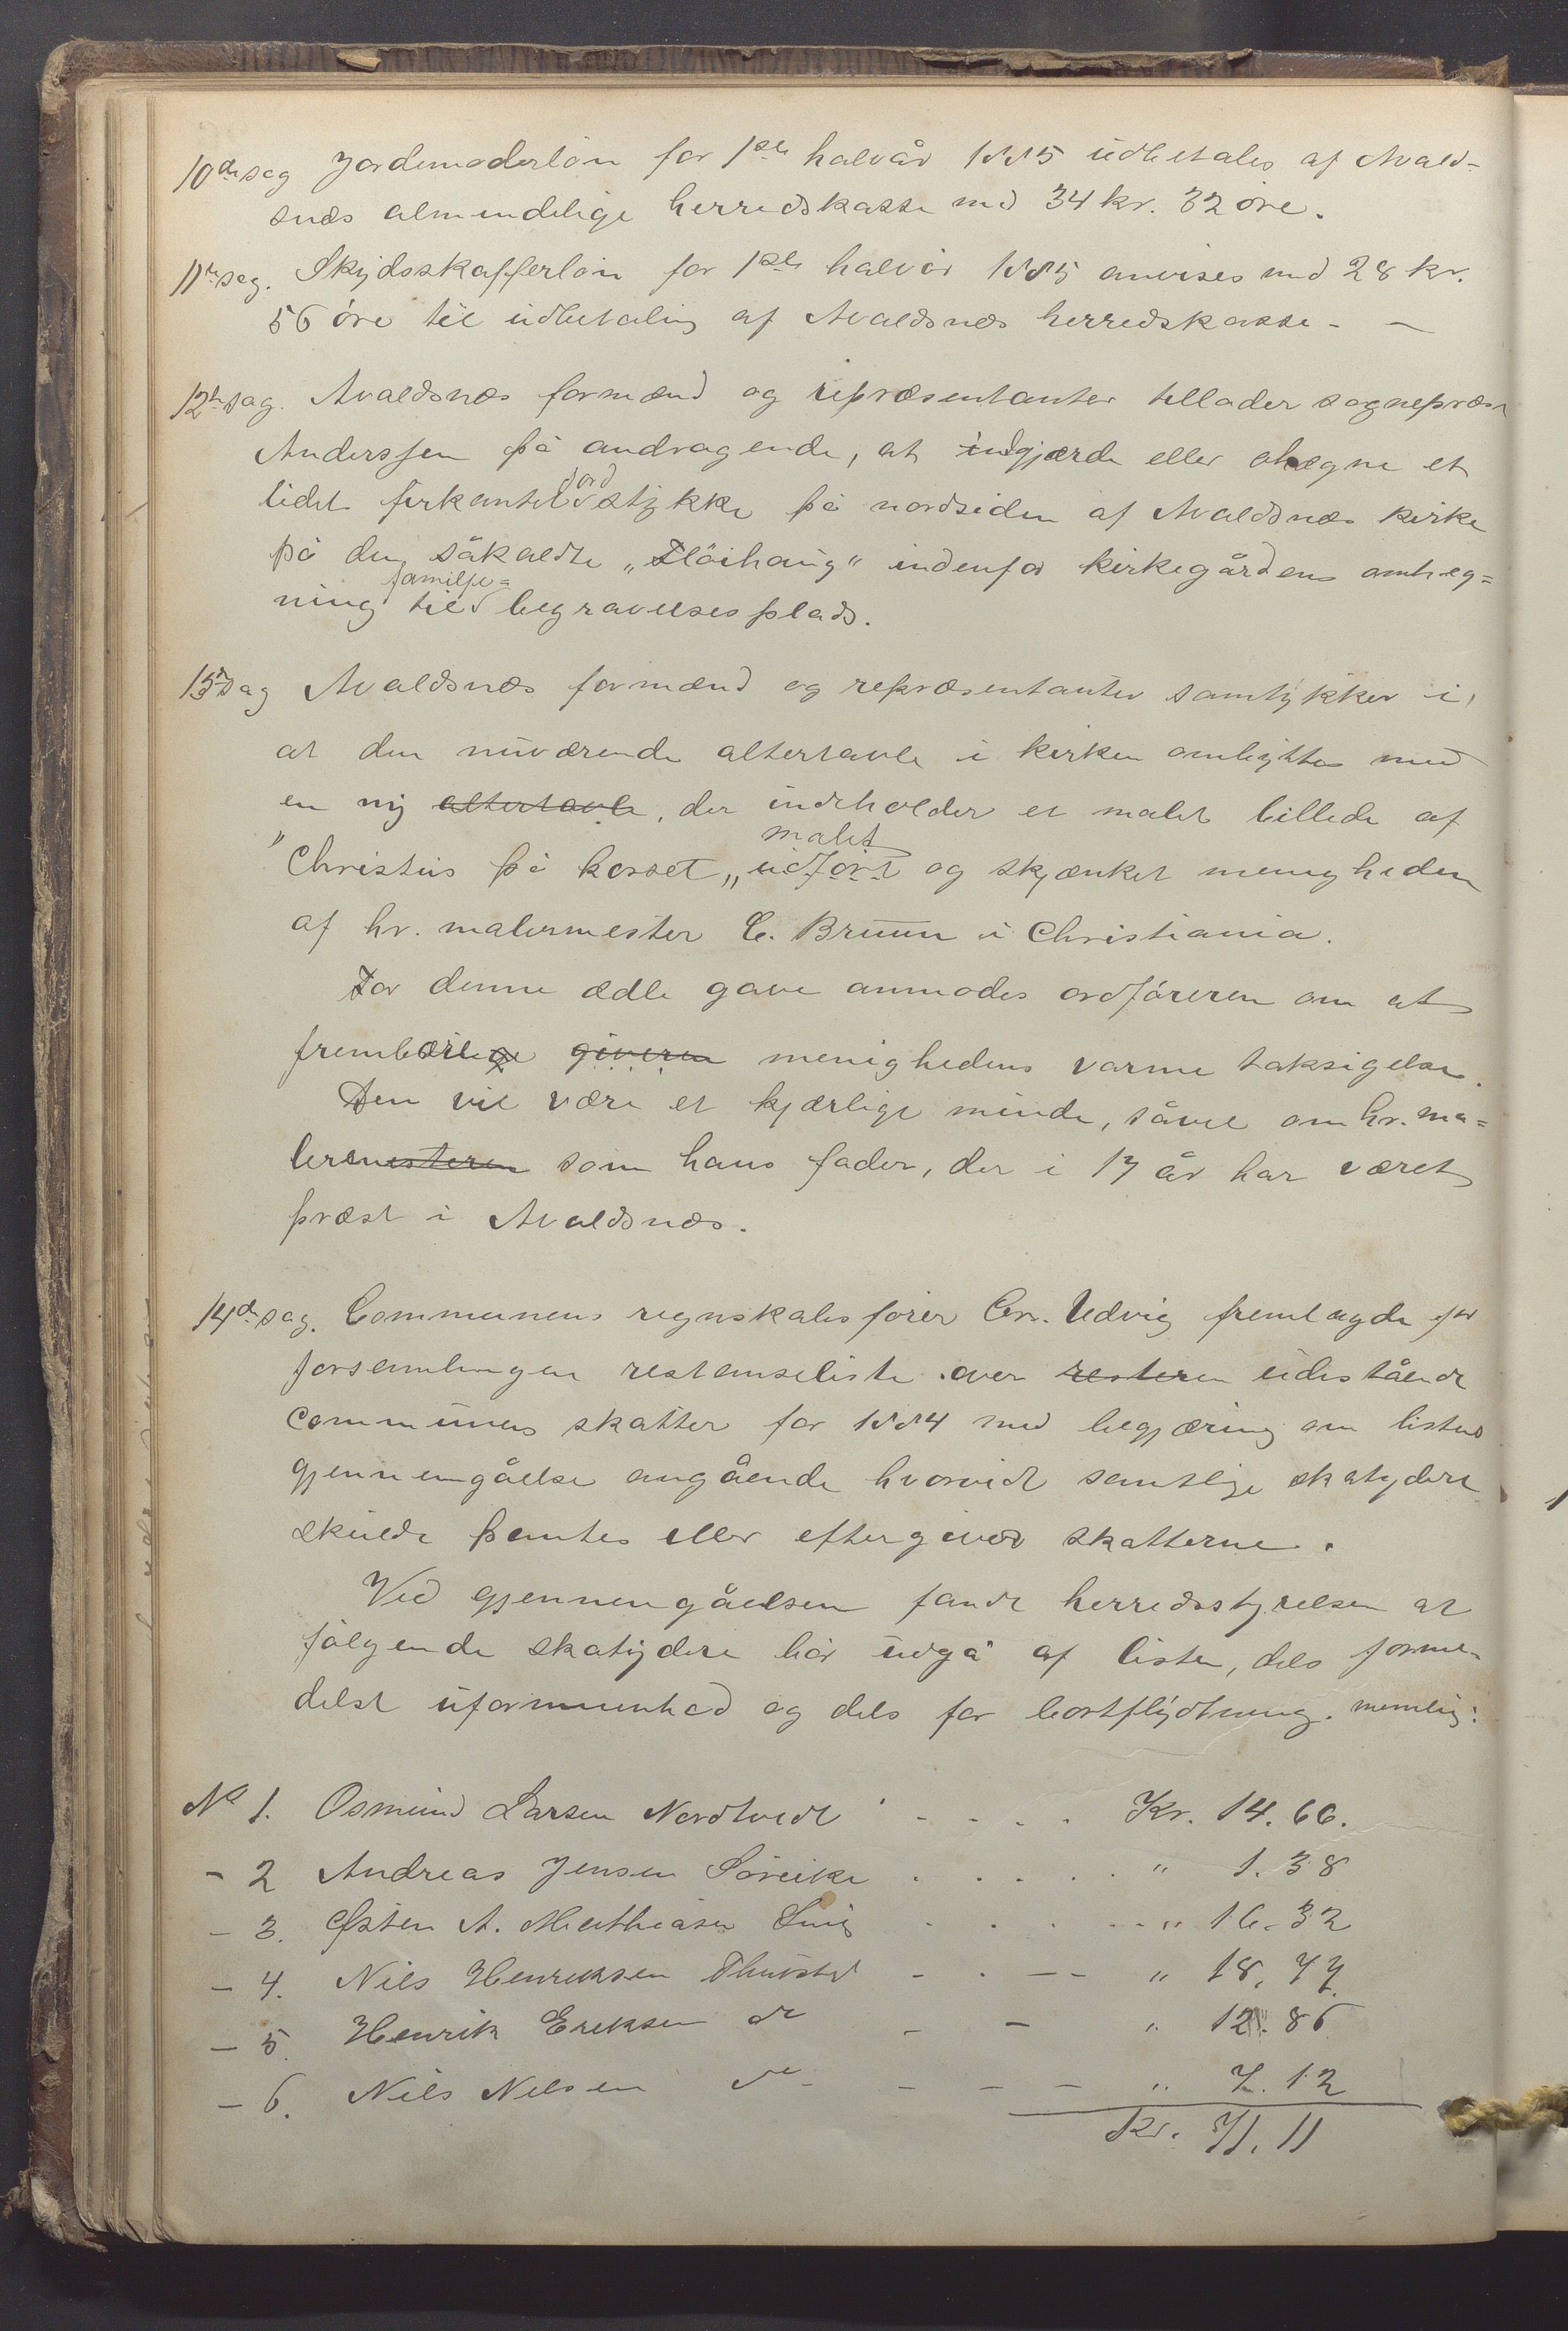 10de sag Jordemoderløn for 1ste halvår 1885 udbetales af Avald-
snæs almindelige herredskasse med 34 kr. 32 øre.
11te sag. Skydsskafferløn for 1ste halvår 1885 anvises med 28 kr.
56 øre til udbetaling af Avaldsnæs herredskasse. —
12te sag. Avaldsnæs formænd og repræsentanter tillader sogneprest
Anderssen på andragende, at indgjærde eller ohegne et
jord
lidet firkantet stykke på nordsiden af Avaldsnæs kirke
på den såkaldte „Flåihaug" indenfor kirkegårdens omheg=
familje=
ning til begravelsesplads.
13de sag Avaldsnæs formænd og repræsentanter samtykker i,
at den nuværende altertavle i kirken ombyttes med
en ny altertavle, der indeholder et malet billede af
malet
"Christus på korset„ udført og skjænket menigheden
af hr. malermester C. Bruun i Christiania.
For denne ædle gave anmodes ordføreren om at
frembære giveren menighedens varme taksigelse.
Den vil være et kjærligt minde, såvel om hr. ma=
lermesteren som hans fader, der i 17 år har været
præst i Avaldsnæs.
14de sag. Communens regnskabsfører Chr. Udvig fremlagde for
forsamlingen restanseliste over resteren udestående
communens skatter for 1884 med begjæring om listens
gjennemgåelse angående hvorvidt samtlige skatydere
skulde pantes eller eftergives skatterne.
Ved gjennemgåelsen fandt herredsstyrelsen at
følgende skatydere bør udgå af listen, dels forme-
delst uformuenhed og dels for bortflydtning. nemlig:
No 1. Osmund Larsen Nordtvedt - - - - Kr. 14. 66.
- 2 Andreas Jensen Søreike . . . . . " 1. 38
- 3. Østen A. Mathiasen . . . . - - " 16. 32
- 4. Nils Henriksen - . - - " 18. 77.
- 5. Henrik Eriksen do - - " 12. 86
- 6. Nils Nilsen do - - - - " 7. 12
Kr. 71. 11